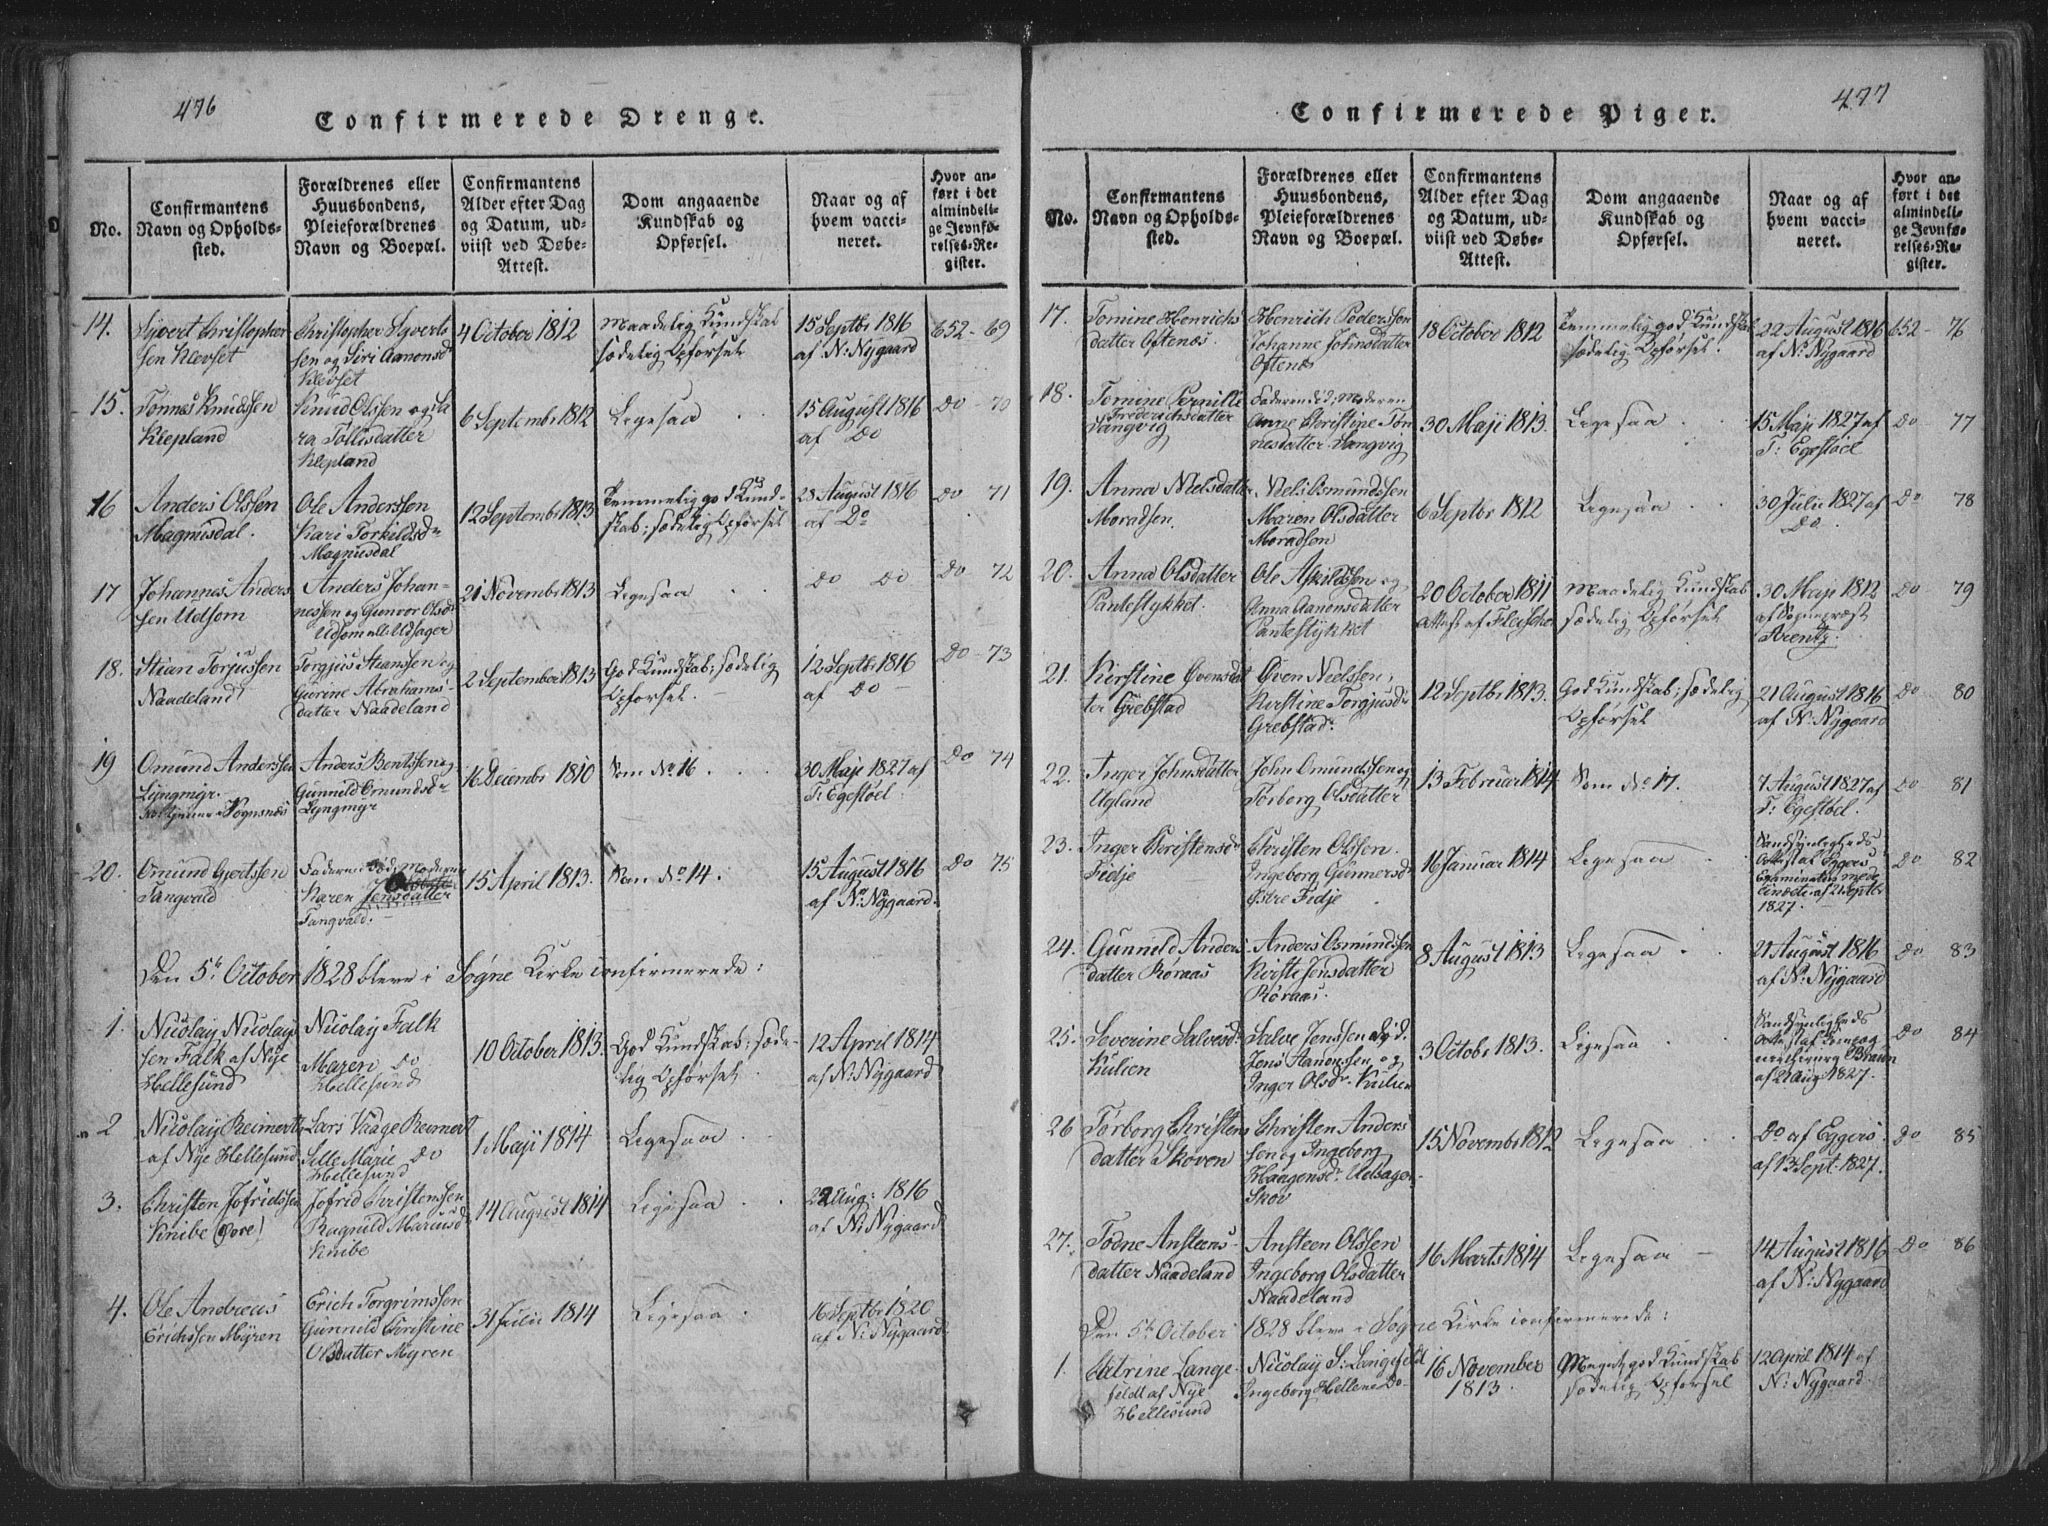 476
Confirmerede Drenge.
No.
Confirmantens
Navn og Opholds-
sted.
Forældrenes eller
Huusbondens,
Pleieforældrenes
Navn og Boepæl.
Confirmantens
Alder efter Dag
og Datum, ud-
viist ved Døbe-
Attest.
Dom angaaende
Kundskab og
Opførsel.
Naar og af
hvem vacci-
neret.
Hvor an-
ført i det
almindeli-
ge Jevnfø-
relses-Re-
gister.
14.
Syvert Christopher
sen Klevset
Christopher Syverts
sen og Siri Aanonsd
Klevset
4 October 1812
Maadelig Kundskab
sædelig Opførsel
15 Septbr 1816
af N: Nygaard
652 - 69
15.
Tønnes Knudssen
Klepland
Knud Olssen og Sa
ra Tollisdatter
Klepland
6 Septembr 1812
Ligesaa
15 August 1816
af Do
Do - 70
16
Anders Olssen
Magnusdal.
Ole Anderssen
Kari Torkildsdr
Magnusdal
12 Septembr 1813
Temmelig god Kund-
skab; sædelig Opførsel
28 August 1816
af Do
Do 71
17
Johannes Anders
sen Udsom
Anders Johan-
nessen og Gunvor Olsdr
Udsom
21 Novembr 1813
Ligesaa
Do Do
Do 72
18.
Stian Torjussen
Naadeland
Torgjus Stiansen og
Gurine Abrahams-
datter Naadeland
2 September 1813
God Kundskab; sædelig
Opførsel.
12 Septbr 1816
af Do
Do - 73
19
Omund Anderssen
Lyngmyr.
Anders Bentssen og
Gunneld Omundsdr
Lyngmyr
16 Decembr 1810
Som No 16.
30 Maji 1827 af
T: Egestøel.
Do 74
20.
Omund Gjertssen
Tangvald
Faderen død, Moderen
Karen Jensdatter
Tangvald.
15 April 1813.
Som No 14.
15 August 1816
af N: Nygaard.
Do 75
Den 5te October 1828 bleve i Søgne Kirke confirmerede:
1.
Nicolay Nicolay
sen Falk af Nye
Hellesund
Nicolay Falk
Maren Do
Hellesund
10 October 1813.
God Kundskab; sæde-
lig Opførsel.
12 April 1814
af N: Nygaard
2
Nicolay Reimert
af Nye Hellesund
Lars Vaage Reimert
Sille Marie Do
Hellesund
1 Maji 1814
Ligesaa
3.
Christen Jofridssen
Knibe (øvre)
Jofrid Christenssen
Ragnild Mariusd
Knibe
14 August 1814
Ligesaa
22 Aug: 1816
af N: Nygaard
4.
Ole Andreas
Erichssen Myren
Erich Torgrimssen
Gunneld Christine
Olsdatter Myren
31 Julii 1814
Ligesaa
16 Septbr 1820
af N: Nygaard
477
Confirmerede Piger.
No.
Confirmantens
Navn og Opholds-
sted.
Forældrenes eller
Huusbondens,
Pleieforældrenes
Navn og Boepæl.
Confirmantens
Alder efter Dag
og Datum, ud-
viist ved Døbe-
Attest.
Dom angaaende
Kundskab og
Opførsel.
Naar og af
hvem vacci-
neret.
Hvor an-
ført i det
almindeli-
ge Jevnfø-
relses-Re-
gister.
17.
Tomine Henrichs
datter Oftenæs
Henrich Pederssen
Johanne Johnsdatter
Oftenæs
18 October 1812
Temmelig god Kundskab
sædelig Opførsel.
22 August 1816
af N: Nygaard
652 - 76
18.
Tomine Pernille
Frederichsdatter
Langvig
Faderen død; Moderen
Anne Christine Tøn
nesdatter Langvig
30 Maji 1813.
Ligesaa
15 Maji 1827 af
T: Egestøel
Do 77
19.
Anna Nielsdatter
Moradsen.
Niels Osmundssen
Maren Olsdatter
Moradsen
6 Septbr 1812
Ligesaa
30 Julii 1827 af
Do.
Do 78
20.
Anna Olsdatter
Pantestykket.
Ole Aspildssen og
Anna Aanonsdatter
Pantestykket
20 October 1811
Attest af Fleischer
Maadelig Kundskab
sædelig Opførsel
30 Maji 1812
af Sognepræst
Arentz
Do 79
21.
Kirstine Øvensdat
ter Grebstad
Øven Nielssen,
Kirstine Torgjusdr
Grebstad.
12 Septbr 1813.
God Kundskab; sædelig
Opførsel
21 August 1816
af N: Nygaard
Do 80
22.
Inger Johnsdatter
Ugland
John Omundssen og
Torborg Olsdatter
13 Februar 1814
Som No 17.
7 August 1827 af
T: Egestøel.
Do 81
23.
Inger Christensd
Fidje
Christen Olssen.
Ingeborg Gunnersd
Østre Fidje
16 Januar 1814
Ligesaa
Sandsynligheds
Attest af Eggers
Examinatus mede
cinæ etc: af 2 Septbr
1827.
Do 82
24.
Gunneld Anders
datter Røraas
Anders Osmundssen
Kirsti Jensdatter
Røraas.
8 August 1813
Ligesaa
21 August 1816
af N: Nygaard
Do 83
25.
Severine Salvesdr
Kulien
Salve Jenssen
Jens Aanenssen og
Inger Olsdr Kulien
3 Octobr 1813.
Ligesaa
Sandsynligheds
Attest af
Braun
af 21 Aug: 1827.
Do 84
26
Torborg Christens
datter Skoven
Christen Anders
sen og Ingeborg
Haagensdr Udsagen
Skov
15 Novembr 1812
Ligesaa
Do af Eggers.
af 13 Sept: 1827.
Do 85
27.
Todne Ansteens-
datter Naadeland
Ansteen Olssen
Ingeborg Olsdatter
Naadeland
16 Marts 1814
Ligesaa
14 August 1816
af N: Nygaard
Do 86
Den 5te October 1828 bleve i Søgne Kirke confirmerede:
1.
Catrine Lange-
feldt af Nye
Hellesund
Nicolay S: Langefeld
Ingeborg Hellene Do
16 November
1813.
Meget god Kundskab
sædelig Opførsel
12 April 1814 af
N: Nygaard.